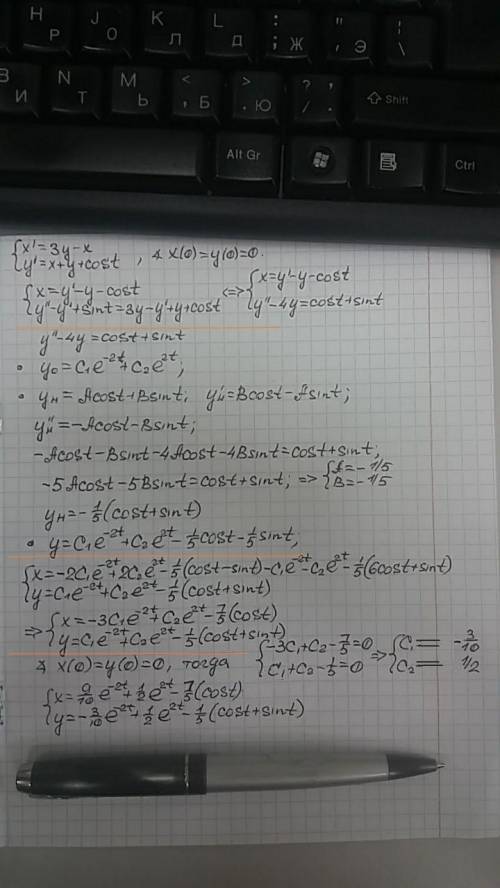 Н Р
J О
K Л
L Д
: ; Ж
" ' Э
| \
В И
N Т
M Ь
< , Б
> . Ю
? / .
Shift
Alt Gr
Ctrl
{x'=3y-x
{y'=x+y+cost , ∡ x(0)=y(0)=0.
{x=y'-y-cost
{y''-y'+sint=3y-y'+y+cost <=> {x=y'-y-cost
{y''-4y=cost+sint
y''-4y=cost+sint
• y₀=C₁e^-2t+C₂e^2t;
• yн=Acost+Bsint; y'н=Bcost-Asint;
y''н=-Acost-Bsint;
-Acost-Bsint-4Acost-4Bsint=cost+sint;
-5Acost-5Bsint=cost+sint; => {A=-1/5
{B=-1/5
yн=-1/5(cost+sint)
• y=C₁e^-2t+C₂e^2t-1/5cost-1/5sint;
{x=-2C₁e^-2t+2C₂e^2t-1/5(cost-sint)-C₁e^-2t-C₂e^2t-1/5(6cost+sint)
{y=C₁e^-2t+C₂e^2t-1/5(cost+sint)
=> {x=-3C₁e^-2t+C₂e^2t-7/5(cost)
{y=C₁e^-2t+C₂e^2t-1/5(cost+sint)
∡ x(0)=y(0)=0, тогда {-3C₁+C₂-7/5=0
{C₁+C₂-1/5=0 => {C₁= -3/10
{C₂= 1/2
{x=9/10e^-2t+1/2e^2t-7/5(cost)
{y=-3/10e^-2t+1/2e^2t-1/5(cost+sint)